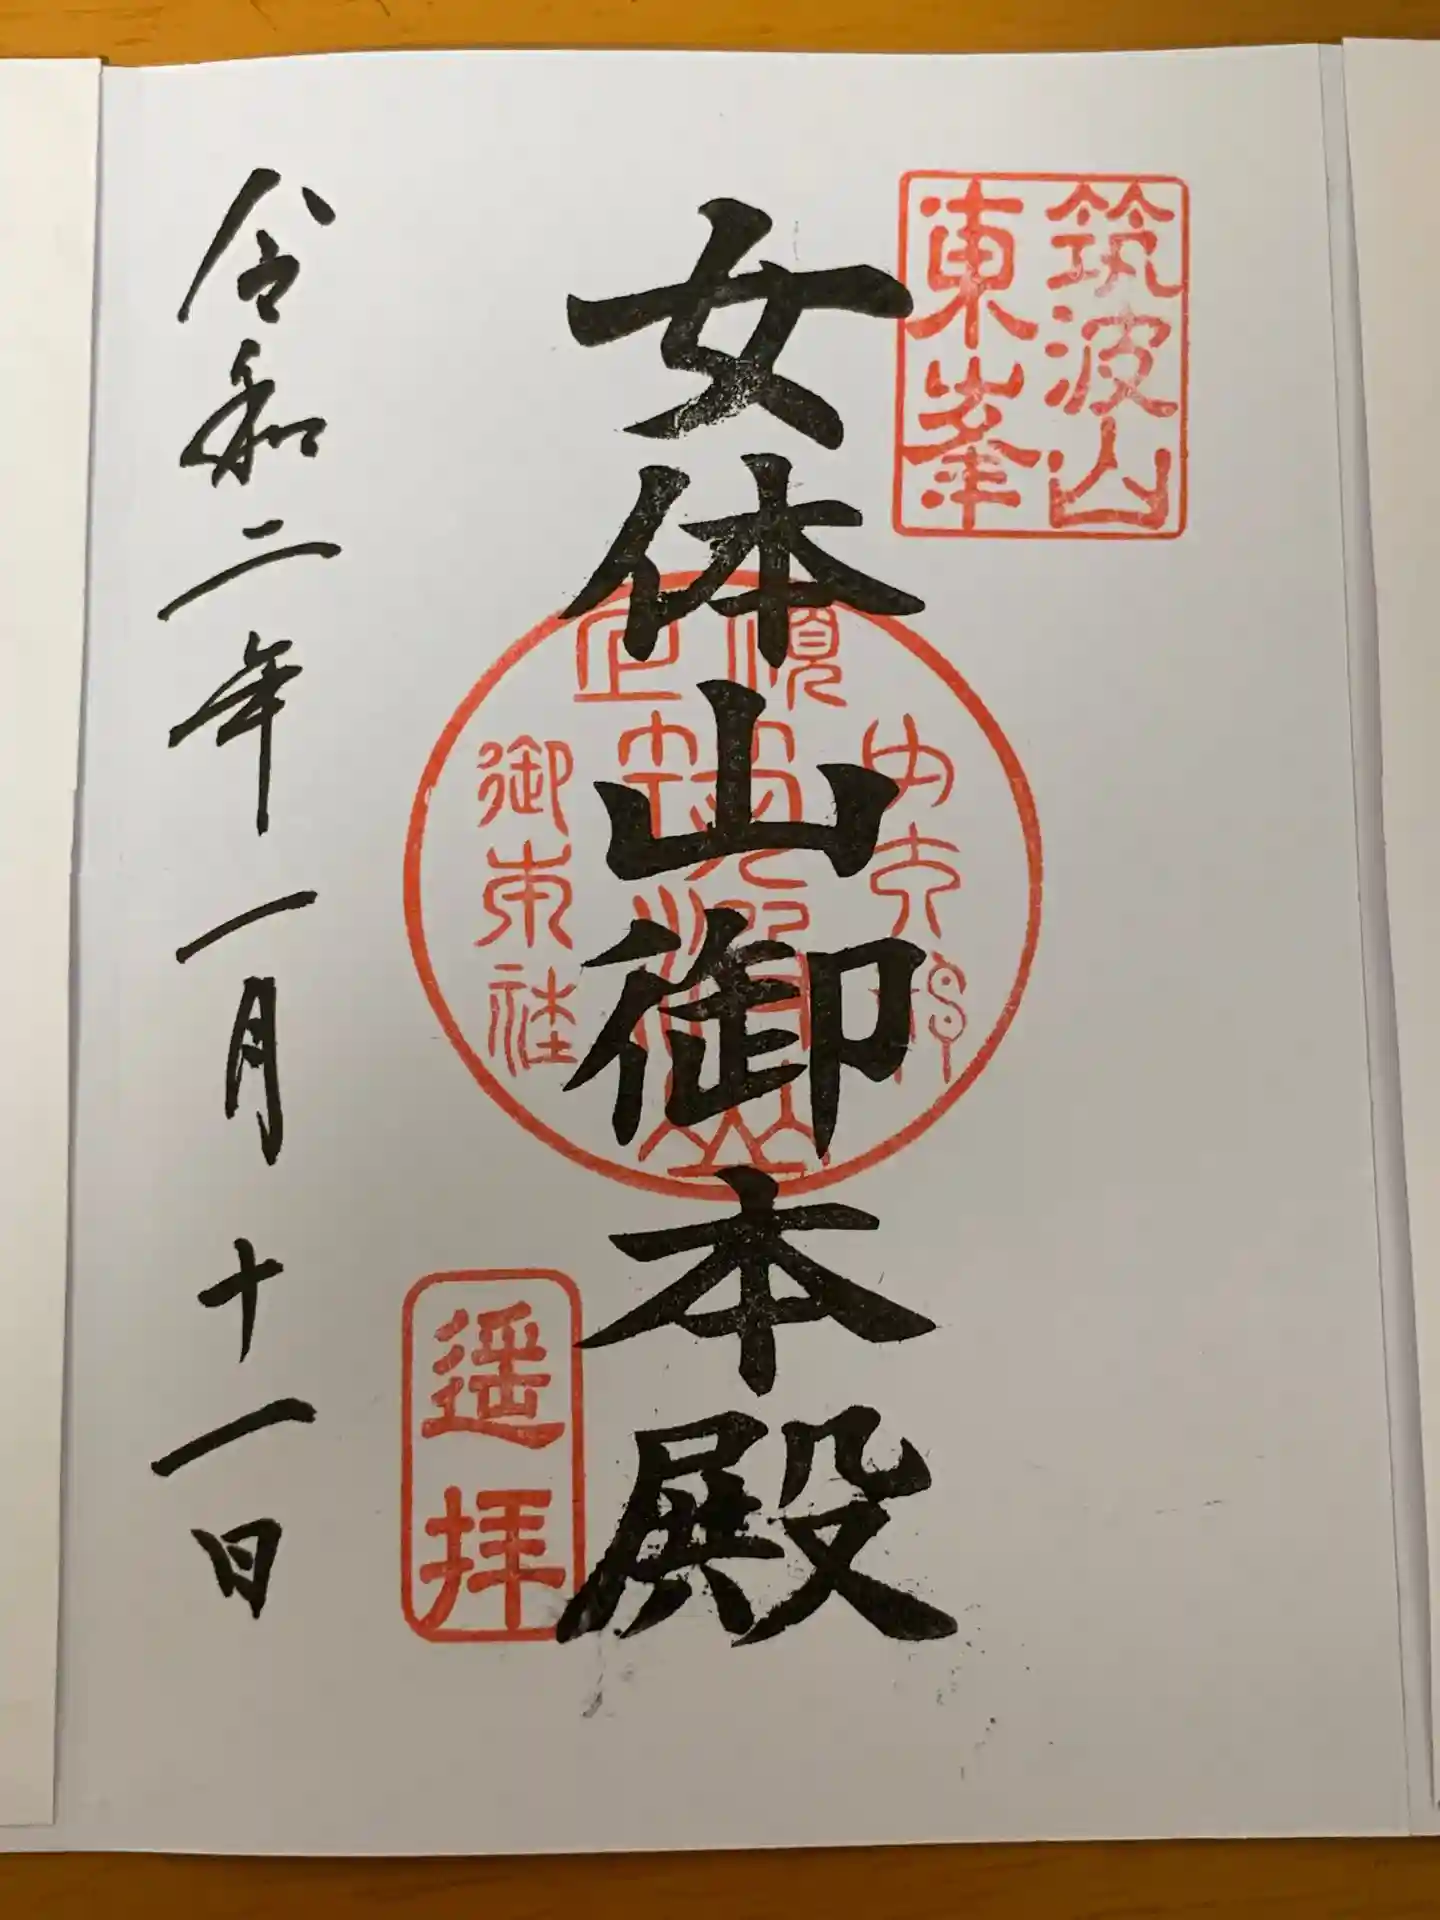 筑波山
東峯
女体山御本殿
遥拝
令和二年一月十一日